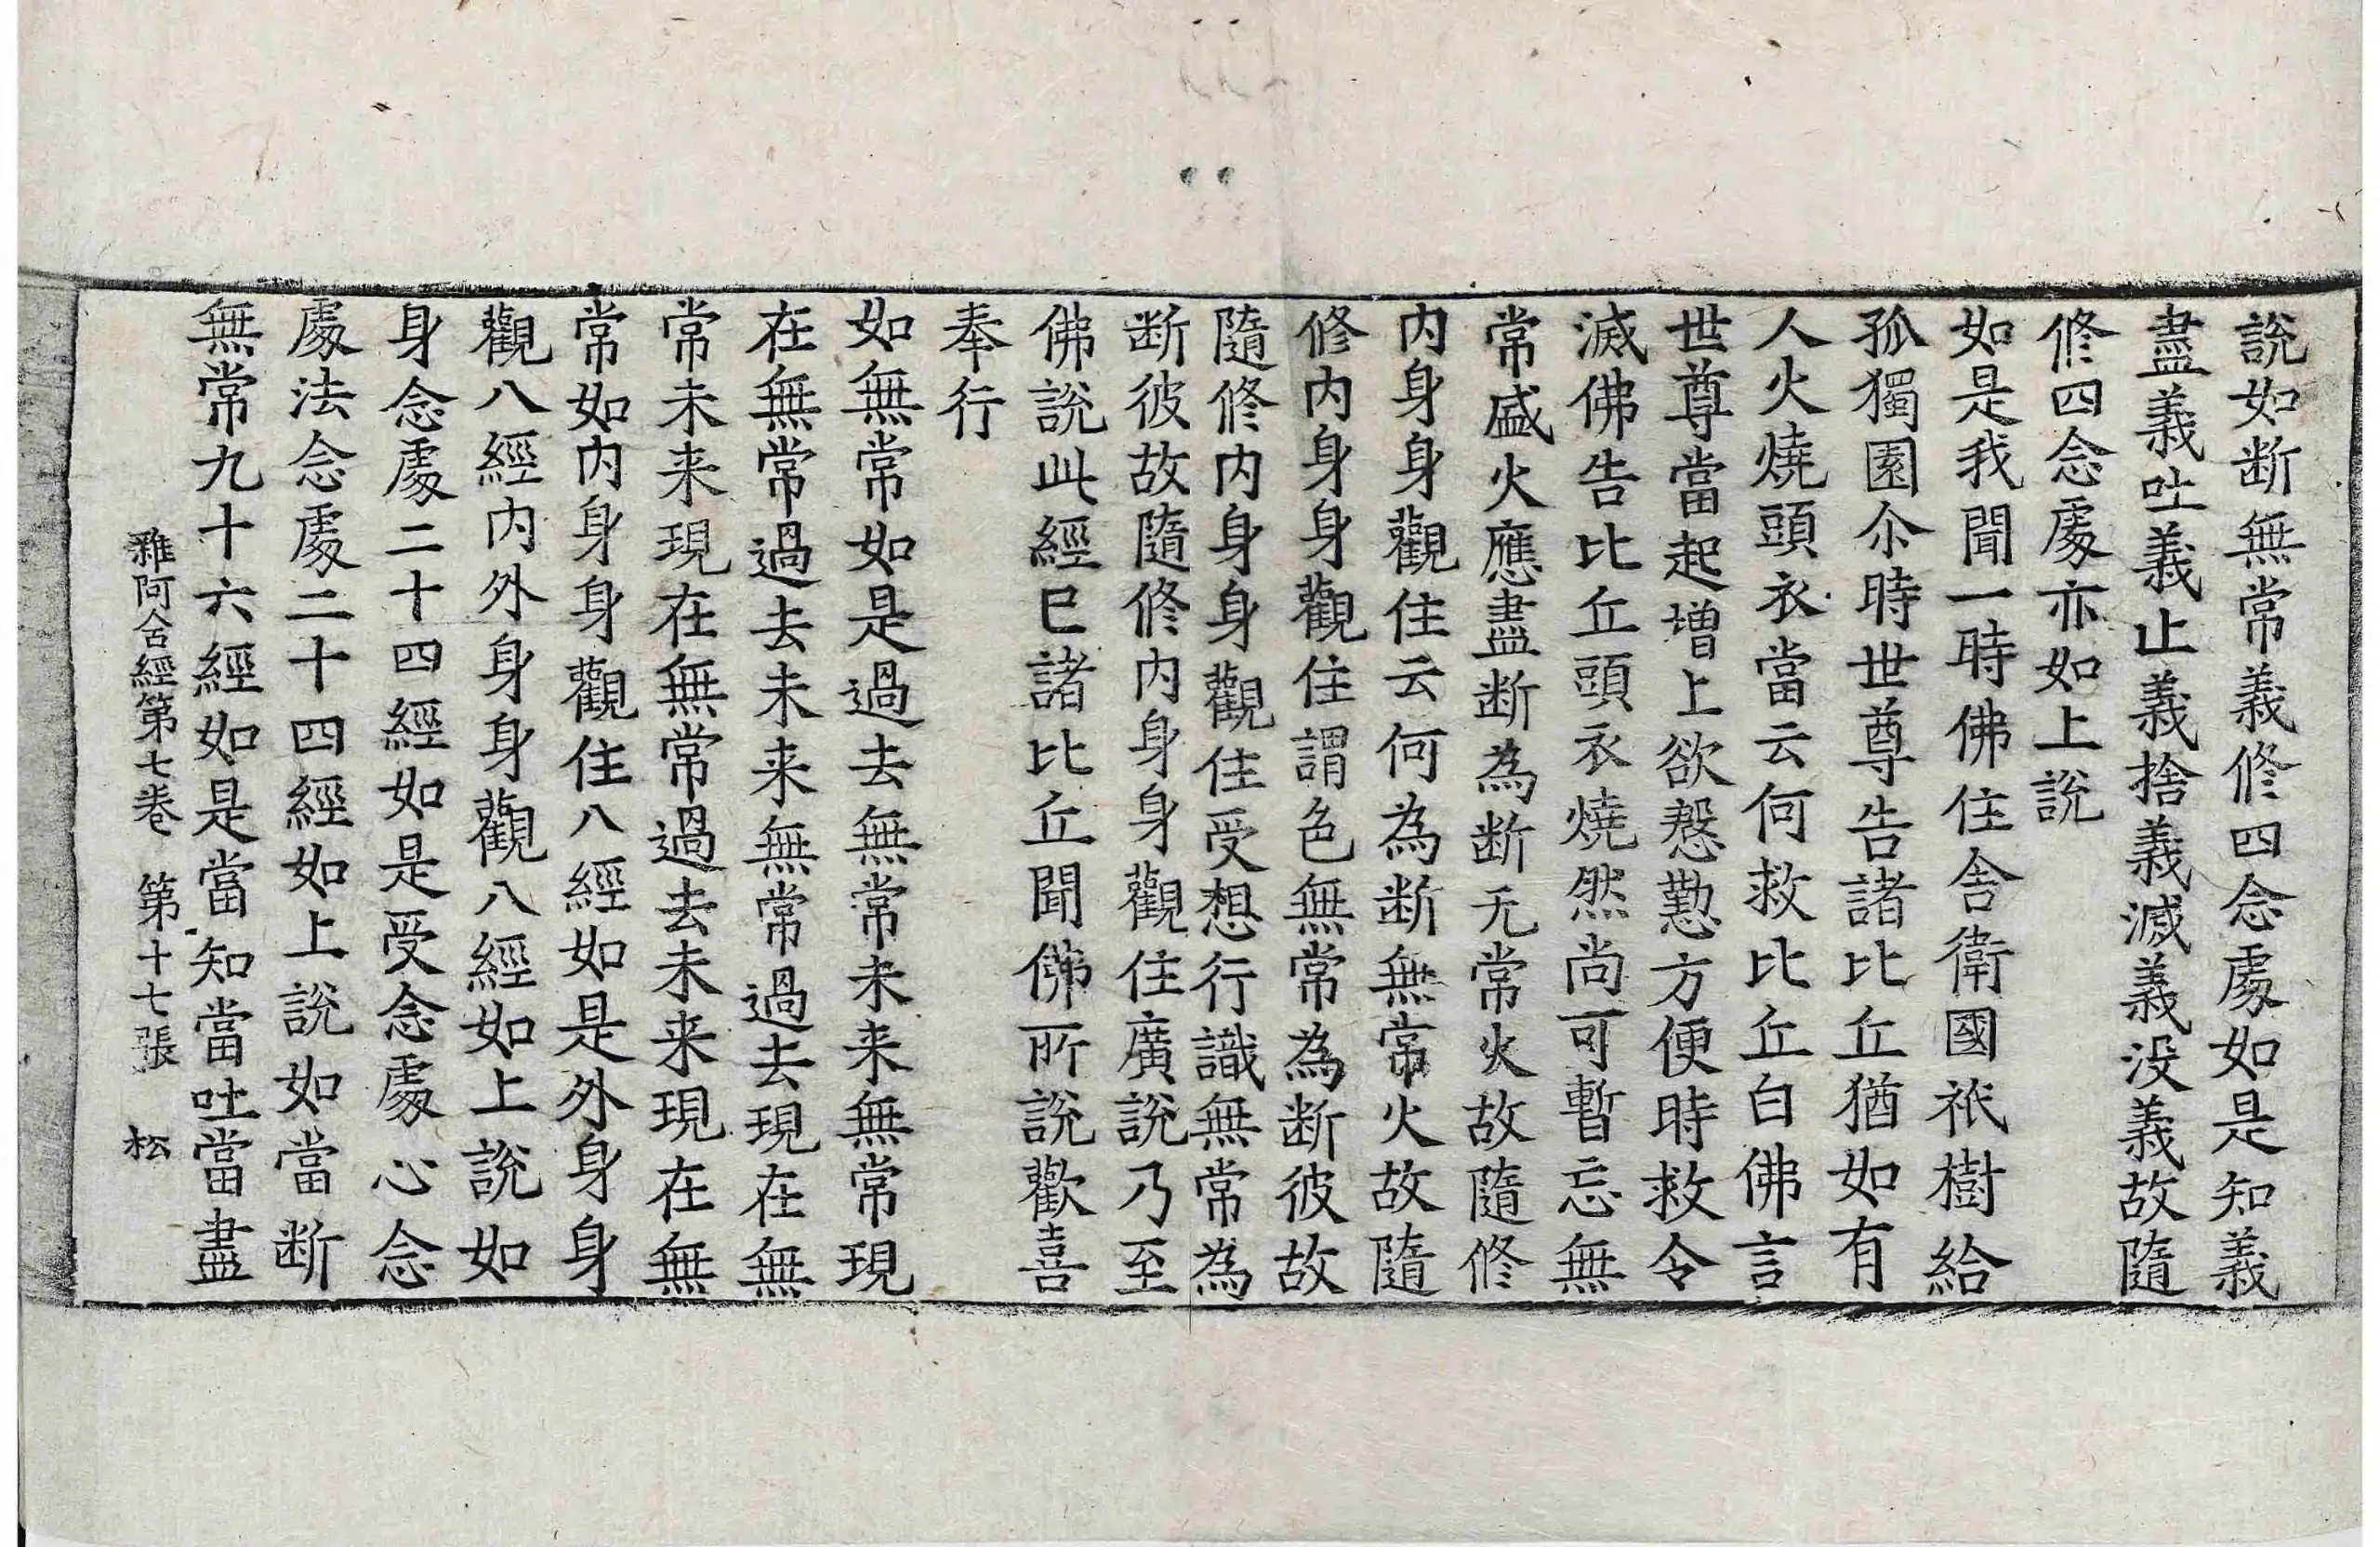 說如断無常義修四念處如是知義
盡義吐義止義捨義滅義没義故隨
修四念處亦如上說
如是我聞一時佛住舎衛國祇樹給
孤獨園尒時世尊告諸比丘猶如有
人火燒頭衣當云何救比丘白佛言
世尊當起增上欲慇懃方便時救令
滅佛告比丘頭衣燒然尚可暫忘無
常盛火應盡断為断无常火故隨修
内身身觀住云何為断無常火故隨
修内身身觀住謂色無常為断彼故
隨修内身身觀住受想行識無常為
断彼故隨修内身身觀住廣說乃至
佛說此經已諸比丘聞佛所說歡喜
奉行
如無常如是過去無常未来無常現
在無常過去未来無常過去現在無
常未来現在無常過去未来現在無
常如内身身觀住八經如是外身身
觀八經内外身身觀八經如上說如
身念處二十四經如是受念處心念
處法念處二十四經如上說如當断
無常九十六經如是當知當吐當盡
雜阿含經第七卷 第十七張 松